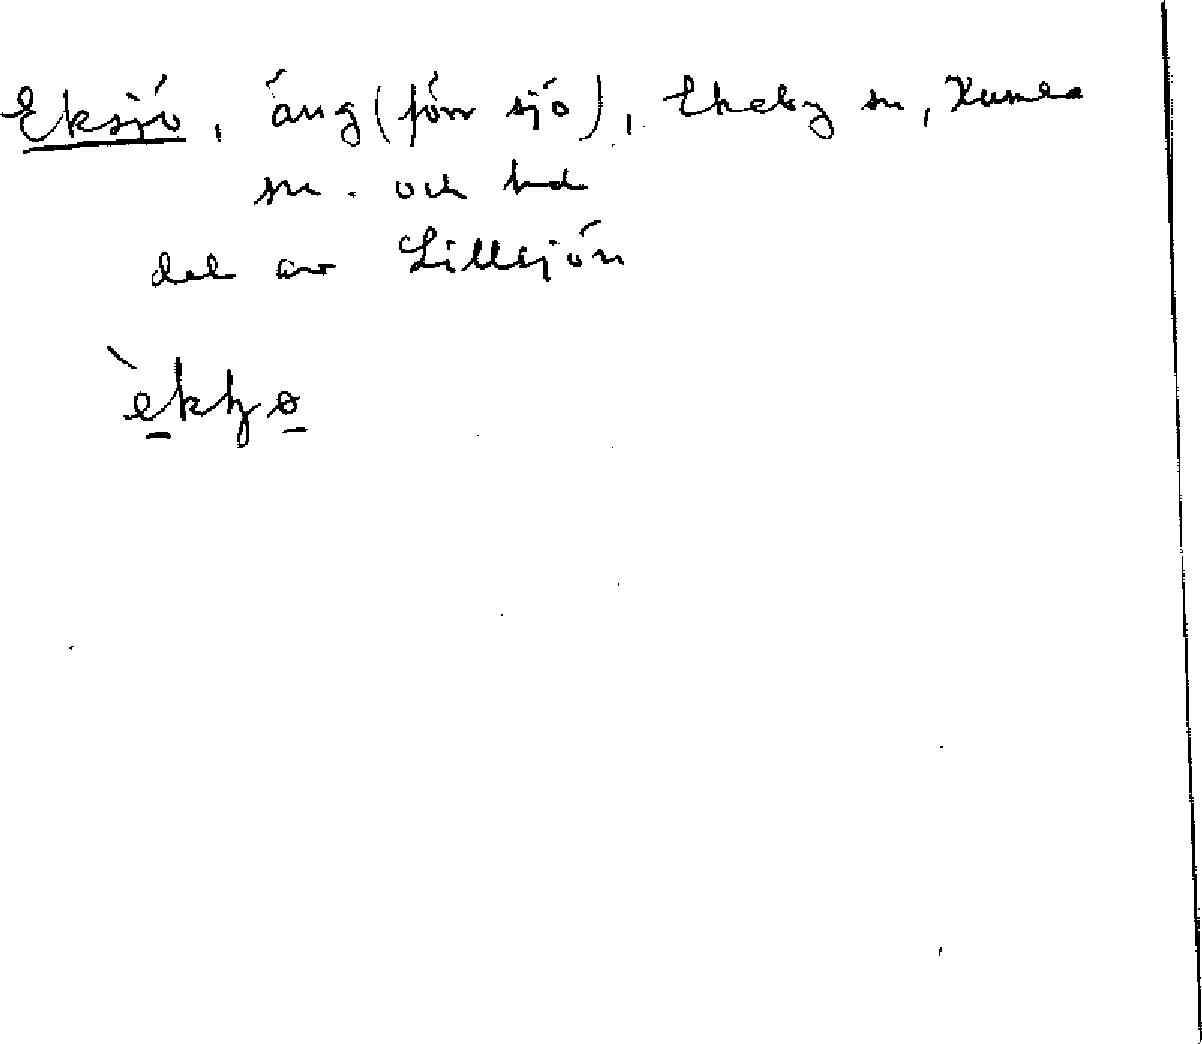 Eksjö, äng (förr sjö), Ekeby sn, Kumla
sn. och hd
del av Lillsjön